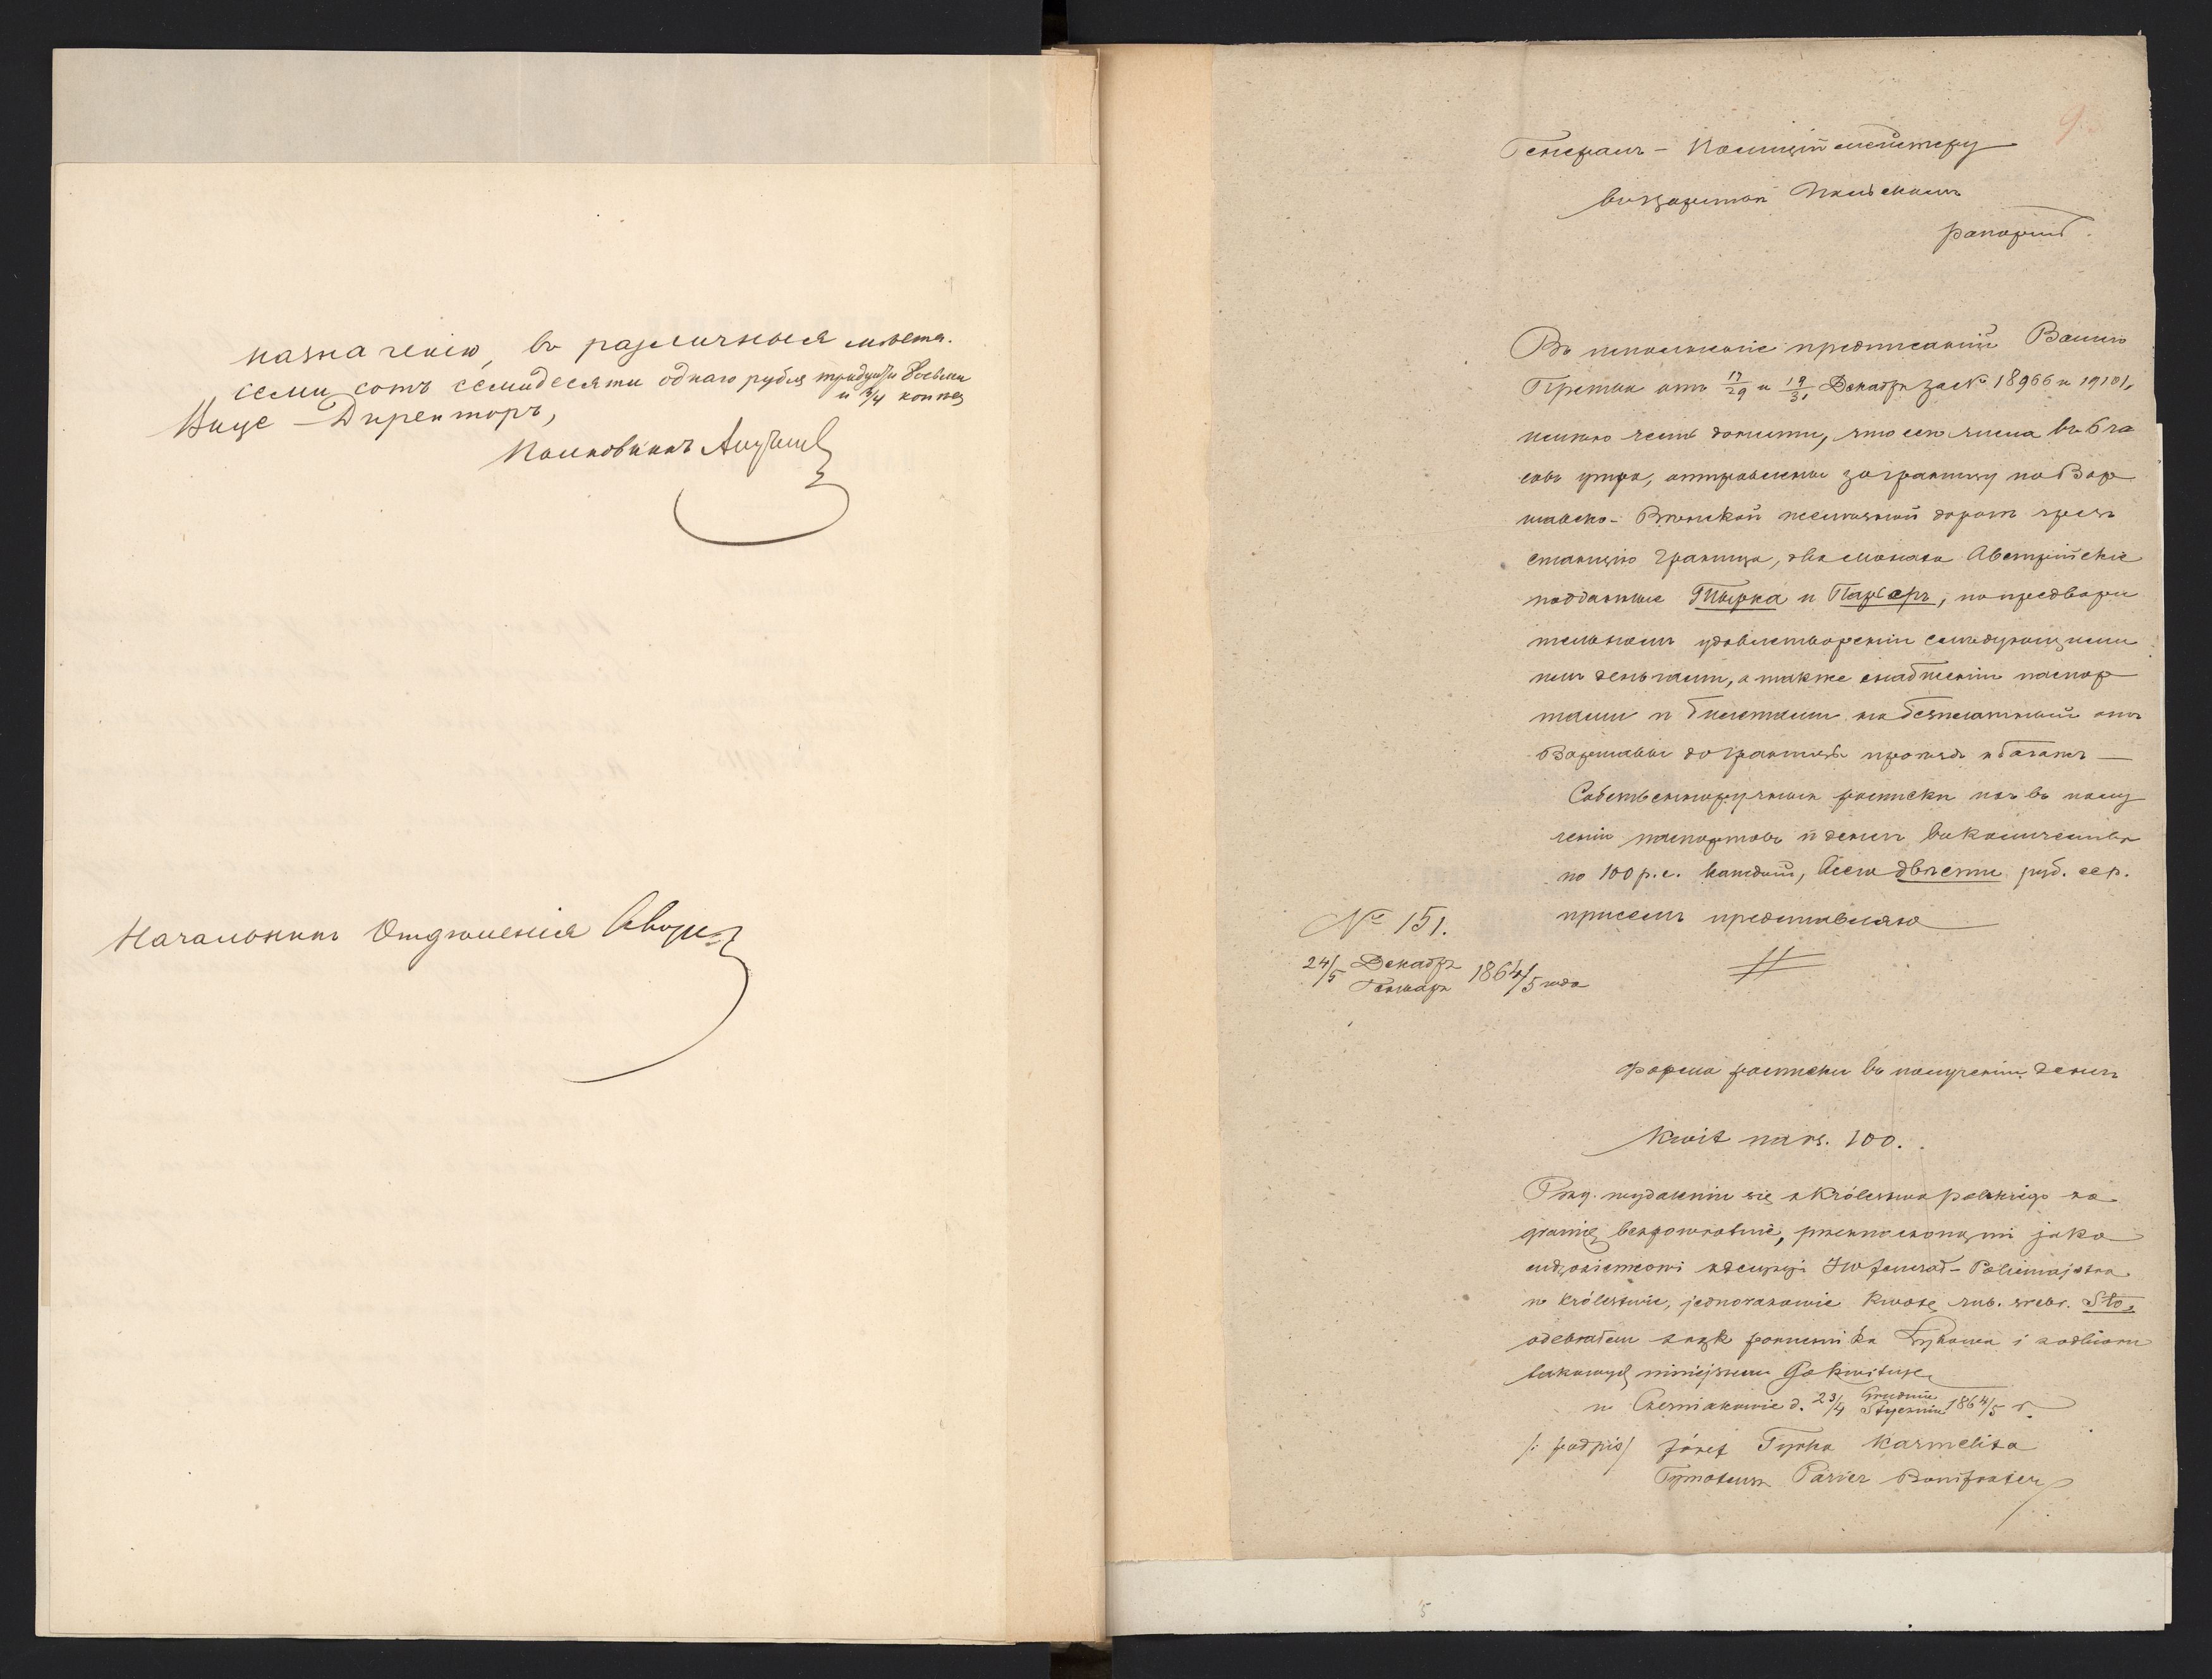 назначенію, въ различныя мѣста.
семи сотъ семидесяти одного рубля тридцати восьми
и 3/4 копѣекъ
Вице-Директоръ,
Полковникъ
Начальникъ Отдѣленія
93
Генералъ-Полиціймейстеру
въ Царствѣ Польскомъ
рапортъ.
Во исполненіе предписаній Вашего
отъ 17/29 и 19/31 Декабря за № 18966 и 19101,
имѣю честь донести, что сего числа въ 6 ча
совъ утра, отправлены заграницу по Вар
шавско-Вѣнской желѣзной дорогѣ чрезъ
станцію Граница, два монаха Австрійскіе
подданные Тырка и Парсеръ, по предвари
тельномъ удовлетвореніи слѣдующими
имъ деньгами, а также снабженіи паспор
тами и билетами на безплатный отъ
Варшавы до границы проѣздъ
Собственноручныя росписки ихъ въ полу
ченіи паспортовъ и денегъ въ количествѣ
по 100 р. с. каждый, всего двѣсти руб. сер.
присемъ представляю
№ 151.
24/5 Декабря Генваря 1864/5 года
Форма росписки въ полученіи денегъ
Kwit na rs. 100.
Przy wydaleniu się z Królestwa Polskiego za
granicę bezpowrotnie, przeznaczoną mi jako
cudzoziemcowi z decyzyi JW Jenerał-Policmajstra
w Królestwie, jednorazowie kwotę rub. srebr. Sto,
odebrałem z rąk porucznika i z odbioru
takowych niniejszem Go kwituję
w Czerniakowie d. 23/4 Grudnia Stycznia 1864/5 r.
/: podpis/ Józef Tyrka Karmelita
Tymoteusz Parser Bonifrater
5